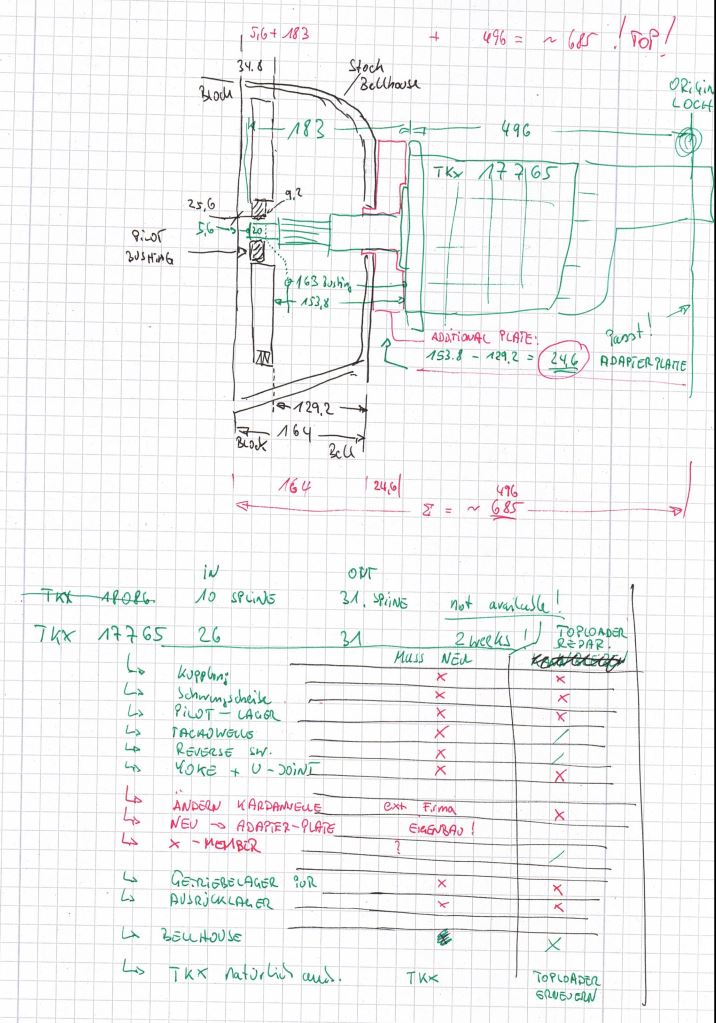 5,6 + 183 + 496 = ~ 685 ! TOP!
34.8
Block
Stock
Bellhouse
ORIGIN
LOCH
183
496
TKX 17765
9,2
25,6
5,6
20
PILOT
BUSHING
163 Bushing
153,8
ADDITIONAL PLATE:
153.8 - 129,2 = 24,6
Passt!
ADAPTERPLATTE
129,2
164
Block
Bell
164
24,6
496
Σ = ~ 685
IN
OUT
TKX 18086
10 SPLINE
31. SPLINE
not available!
TKX 17765
26
31
2 weeks!
TOPLOADER
REPAR.
MUSS NEU
↳ Kupplung x x
↳ Schwungscheibe x x
↳ PILOT-LAGER x x
↳ TACHOWELLE x /
↳ REVERSE SW. x /
↳ YOKE + U-JOINT x x
↳ ÄNDERN KARDANWELLE ext Firma x
↳ NEU → ADAPTER-PLATE EIGENBAU!
↳ X-MEMBER ? /
↳ GETRIEBELAGER x x
↳ AUSRÜCKLAGER x x
↳ BELLHOUSE x
↳ TKX natürlich TKX
TOPLOADER
ERNEUERN